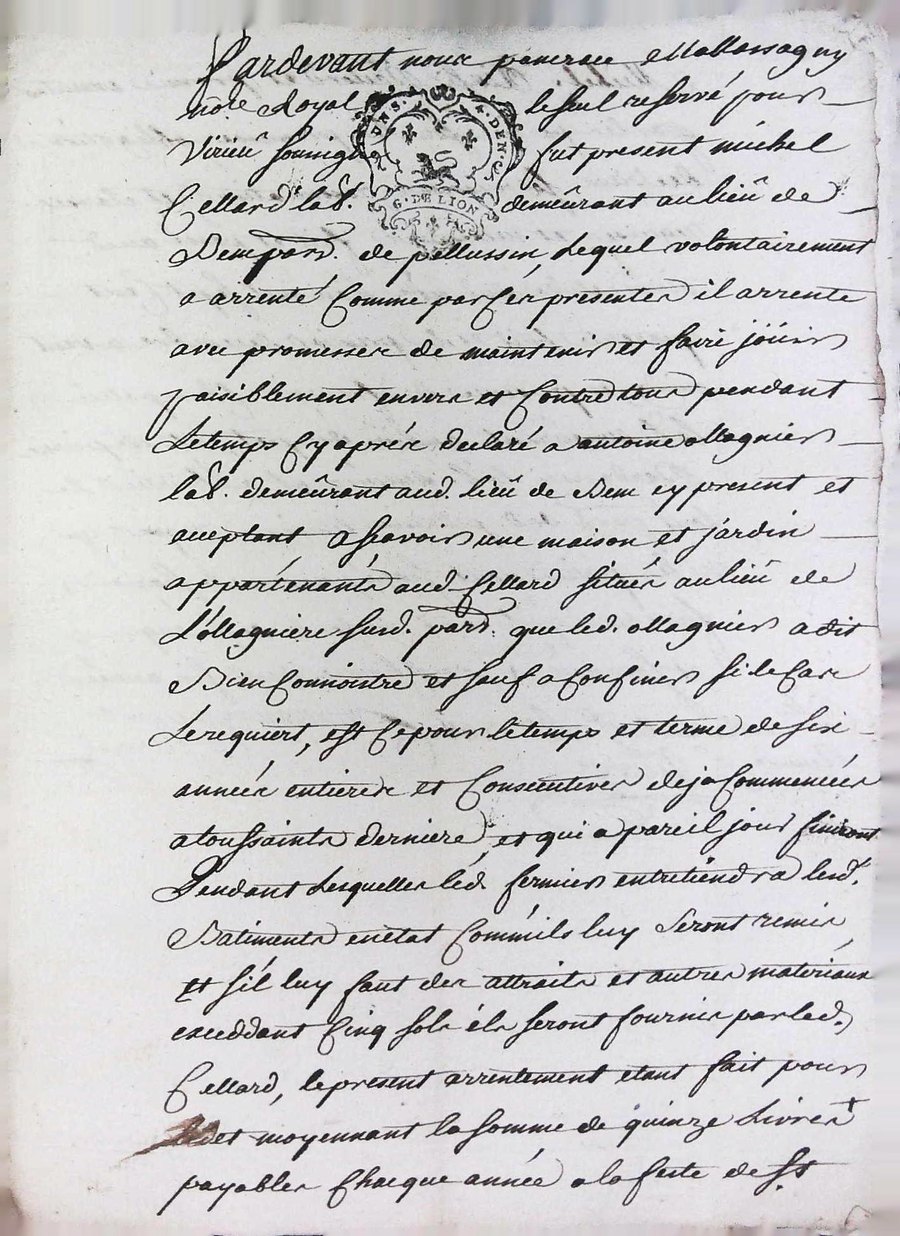 Pardevant nous pancrace Mallassagny
no.re Royal le seul reservé pour
Virieu soussigné fut present michel
Cellard lab.r demeûrant au lieû de
Bem par.d de pellussin, Lequel volontairement
a arrenté Comme par Ces presentes il arrente
avec promesses de maintenir et faire joüir
paisiblement envers et Contre tous pendant
Le temps Cy aprés declaré a antoine Magnier
lab.r demeûrant aud. lieû de Bem cy present et
acceptant a scavoir une maison et jardin
appartenants aud. Cellard situés au lieû de
L'Magniere susd. par.d que led. Magnier a dit
Bien Connoitre et sauf a Confiner si le Cas
Le requiert, est Ce pour le temps et terme de six
années entieres et Consecutives deja Commencées
a toussaints derniere, et qui a pareil jour finiront
Pendant Lesquelles led. fermier entretiendra lesd.
Batiments en état Comm'ils luy seront remis
et s'il luy faut des attraits et autres materiaux
exceddant Cinq sols ils seront fournis par led.
Cellard, le present arrentement etant fait pour
et moyennant la somme de quinze Livres
payables Chaque année a la feste de st
UNS. 4. DEN.
G. DE LION